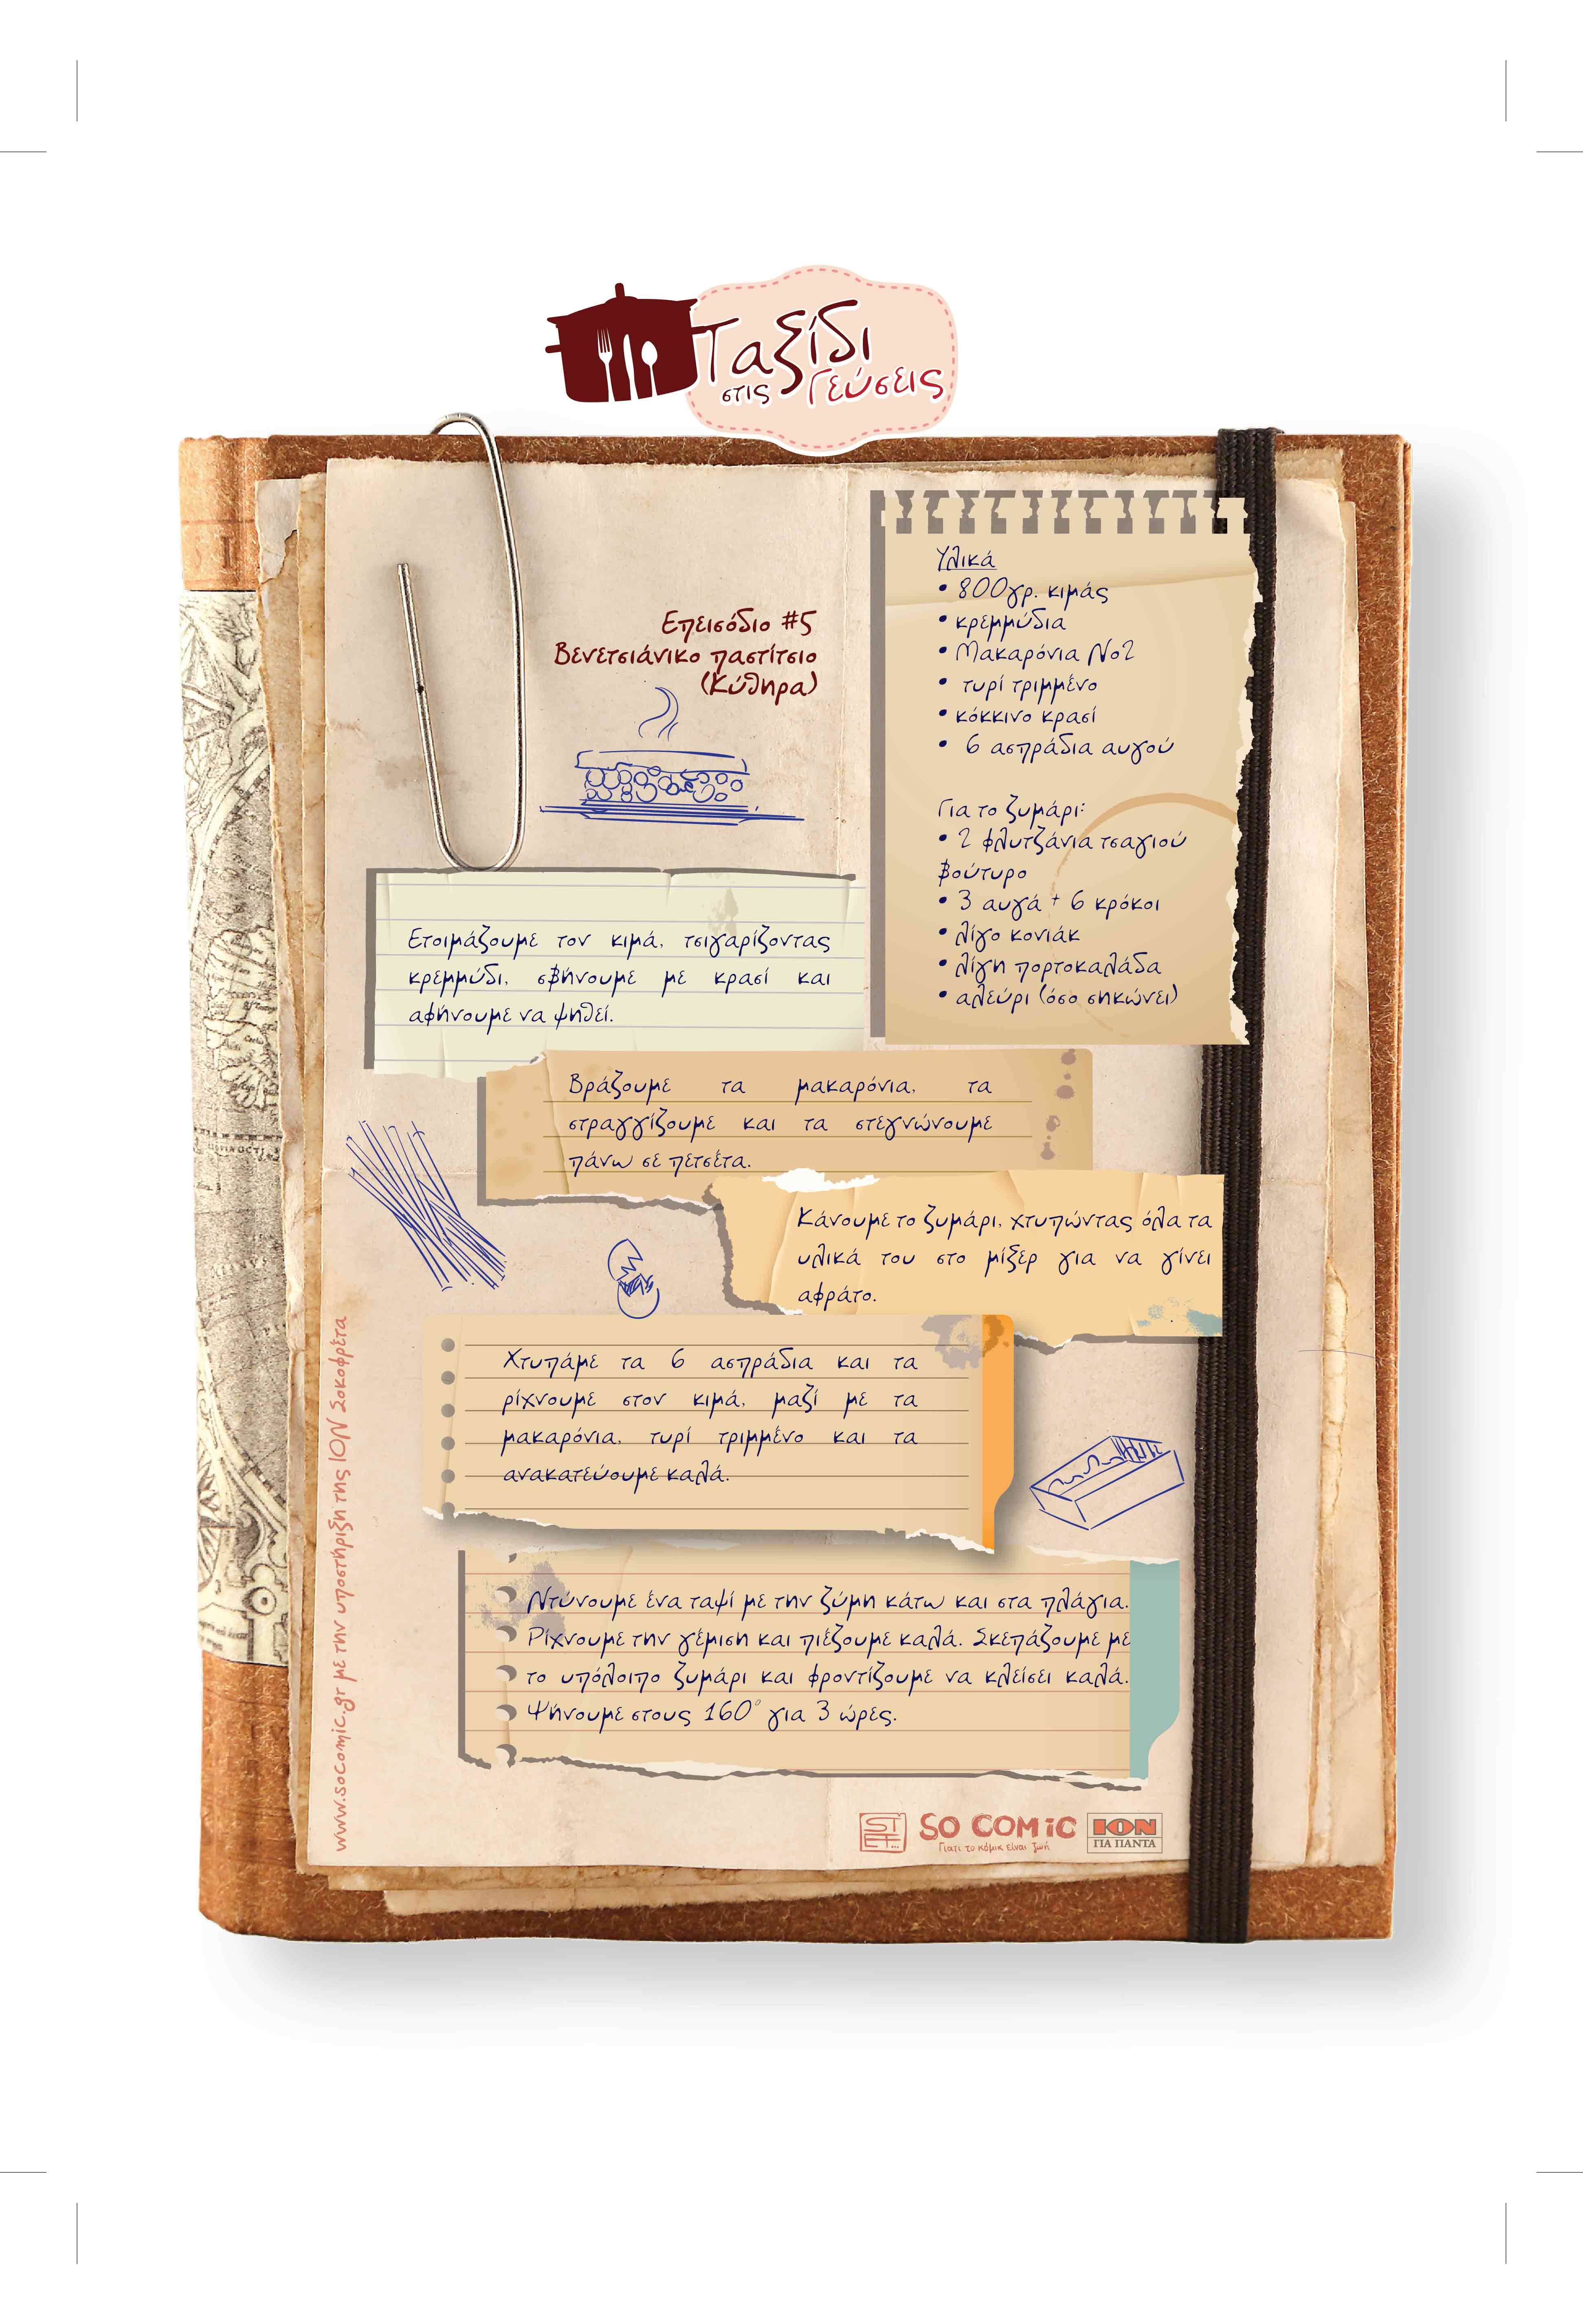 Ταξίδι
στις Γεύσεις
Επεισόδιο #5
Βενετσιάνικο παστίτσιο
(Κύθηρα)
Υλικά
• 800γρ. κιμάς
• κρεμμύδια
• Μακαρόνια Νο2
• τυρί τριμμένο
• κόκκινο κρασί
• 6 ασπράδια αυγού
Για το ζυμάρι:
• 2 φλυτζάνια τσαγιού
βούτυρο
• 3 αυγά + 6 κρόκοι
• λίγο κονιάκ
• λίγη πορτοκαλάδα
• αλεύρι (όσο σηκώνει)
Ετοιμάζουμε τον κιμά, τσιγαρίζοντας
κρεμμύδι, σβήνουμε με κρασί και
αφήνουμε να ψηθεί.
Βράζουμε τα μακαρόνια, τα
στραγγίζουμε και τα στεγνώνουμε
πάνω σε πετσέτα.
Κάνουμε το ζυμάρι, χτυπώντας όλα τα
υλικά του στο μίξερ για να γίνει
αφράτο.
Χτυπάμε τα 6 ασπράδια και τα
ρίχνουμε στον κιμά, μαζί με τα
μακαρόνια, τυρί τριμμένο και τα
ανακατεύουμε καλά.
Ντύνουμε ένα ταψί με την ζύμη κάτω και στα πλάγια.
Ρίχνουμε την γέμιση και πιέζουμε καλά. Σκεπάζουμε με
το υπόλοιπο ζυμάρι και φροντίζουμε να κλείσει καλά.
Ψήνουμε στους 160° για 3 ώρες.
www.socomic.gr με την υποστήριξη της ΙΟΝ Σοκοφρέτα
SO COMiC
Γιατι το κόμικ είναι ζωή
ΙΟΝ
ΓΙΑ ΠΑΝΤΑ